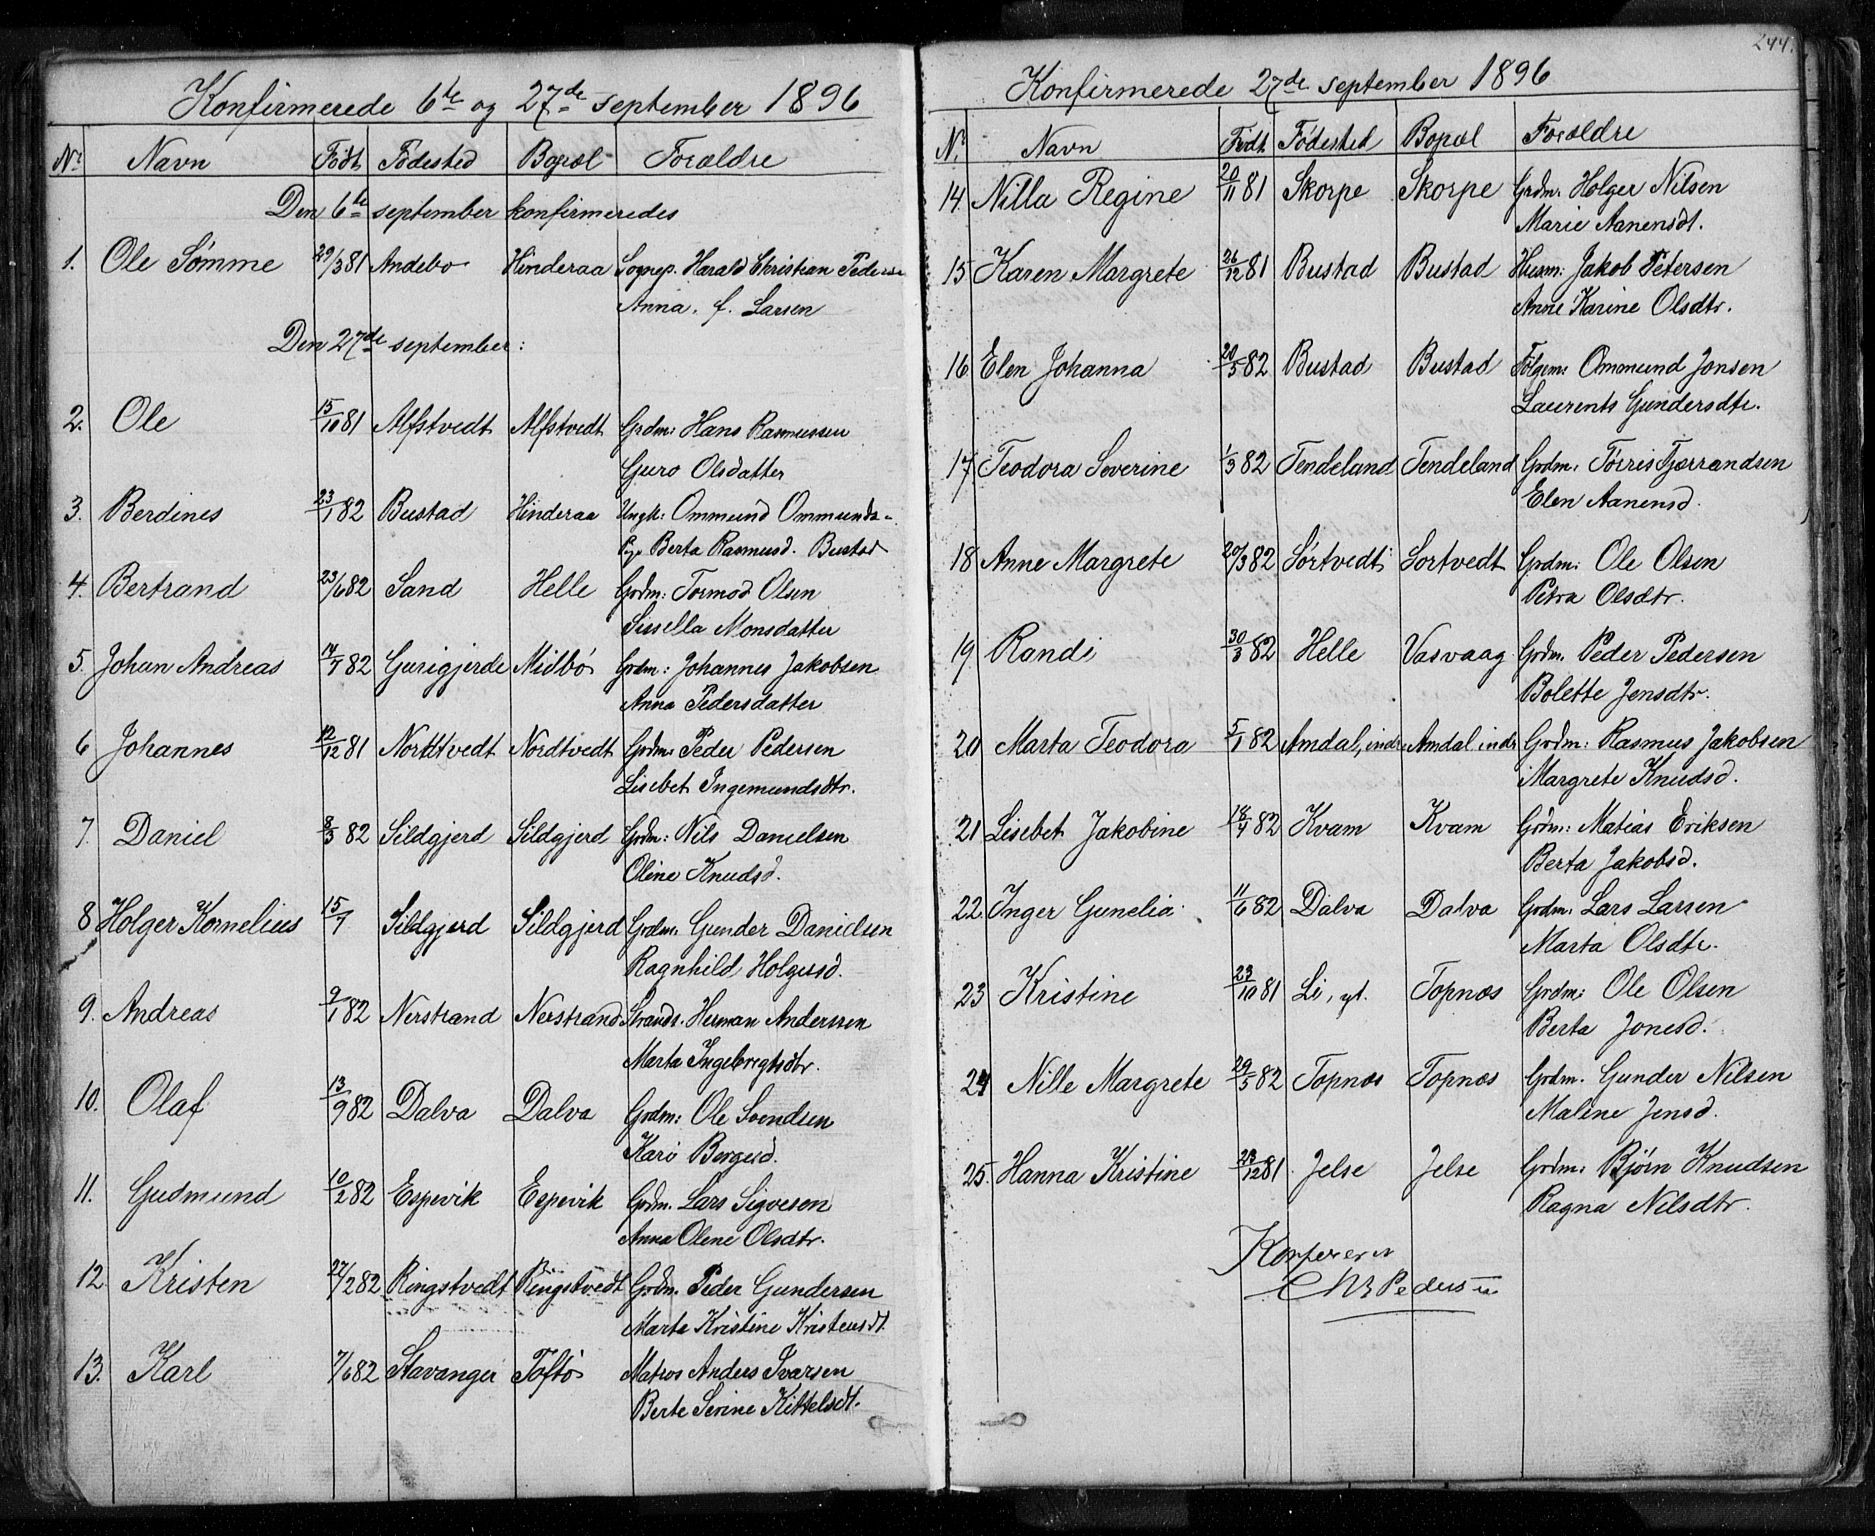 Konfirmerede 6te og 27de september 1896
Nr. Navn Født Fødested Bopæl Forældre
Den 6te september konfirmeredes
1. Ole Sømme 29/3 81 Andebo Hinderaa Sognep. Harald Christian Pedersen
Anna, f. Larsen
Den 27de september:
2. Ole 15/10 81 Alfstvedt Alfstvedt Grdm: Hans Rasmussen
Guro Olsdatter
3. Berdines 23/1 82 Bustad Hinderaa Ungk: Ommund Ommunds-
Pige Berta Rasmusd. Bustad
4. Bertrand 23/6 82 Sand Helle Grdm: Tormod Olsen
Sissella Monsdatter
5. Johan Andreas 14/7 82 Gurigjerde Midbø Grdm: Johannes Jakobsen
Anna Pedersdatter
6 Johannes 12/12 81 Nordtvedt Nordtvedt Grdm: Peder Pedersen
Lisebet Ingemundsdtr.
7. Daniel 8/3 82 Sildgjerd Sildgjerd Grdm: Nils Danielsen
Oline Knudsd.
8 Holger Kornelius 15/7 Sildgjerd Sildgjerd Grdm: Gunder Danielsen
Ragnhild Holgersd.
9. Andreas 9/1 82 Nerstrand Nerstrand Strands. Herman Anderssen
Marta Ingebregtsdtr.
10. Olaf 13/9 82 Dalva Dalva Grdm: Ole Svendsen
Kari Borgesd.
11. Gudmund 10/2 82 Espevik Espevik Grdm. Lars Sigvesen
Anna Olene Olsdtr.
12 Kristen 27/2 82 Ringstvedt Ringstvedt Grdm. Peder Gundersen
Marta Kristine Kristensdt.
13. Karl 7/6 82 Stavanger Toftø Matros Anders Ivarsen
Berte Serine Kittelsdt.
244.
Konfirmerede 27de september 1896
Nr. Navn Født Fødested Bopæl Forældre
14. Nilla Regine 20/11 81 Skorpe Skorpe Grdm. Holger Nilsen
Marie Aanensdt.
15 Karen Margrete 26/12 81 Bustad Bustad Husm: Jakob Petersen
Anne Karine Olsdtr.
16 Elen Johanna 20/5 82 Bustad Bustad Følgem: Ommund Jonsen
Laurents Gundersdtr.
17 Teodora Severine 1/3 82 Tendeland Tendeland Grdm. Tørris Tjerrandsen
Elen Aanensd.
18 Anne Margrete 20/3 82 Sørtvedt Sortvedt Grdm: Ole Olsen
Petra Olsdtr.
19 Randi 30/3 82 Helle Vasvaag Grdm. Peder Pedersen
Bolette Jensdtr.
20 Marta Teodora 5/1 82 Amdal, indre Amdal indr Grdm: Rasmus Jakobsen
Margrete Knudsd.
21 Lisebet Jakobine 18/4 82 Kvam Kvam Grdm: Matias Eriksen
Berta Jakobsd.
22 Inger Gunelia 11/6 82 Dalva Dalva Grdm. Lars Larsen
Marta Olsdtr.
23 Kristine 23/10 81 Li, yt. Topnæs Grdm: Ole Olsen
Berta Jonesd.
24 Nille Margrete 29/5 82 Topnæs Topnæs Grdm. Gunder Nilsen
Malene Jensd.
25. Hanna Kristine 23/12 81 Jelse Jelse Grdm: Bjørn Knudsen
Ragna Nilsdtr.
Konfereret
Chr Pedersen